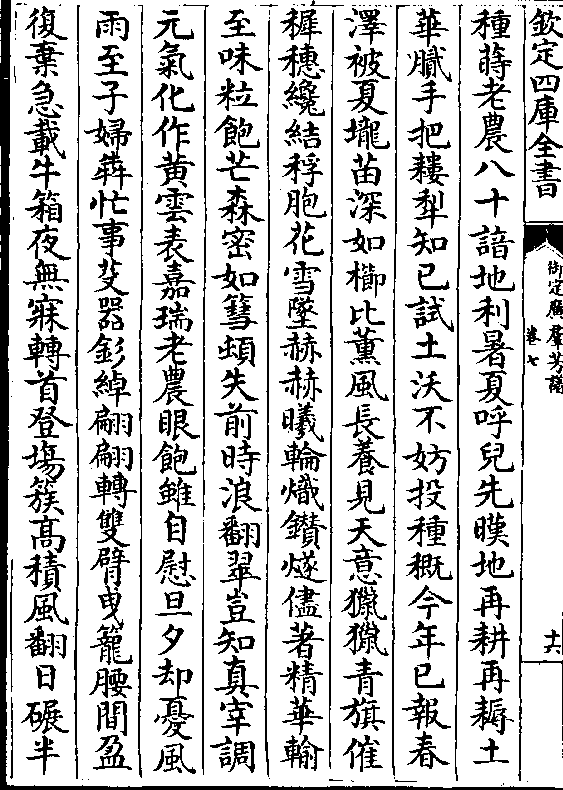 欽定四庫全書
御定廣羣芳譜
卷七
十六
種蒔老農八十諳地利暑夏呼兒先暵地再耕再耨土
華膩手把耬犁知已試土沃不妨投種概今年已報春
澤被夏壠苗深如櫛比薰風長養見天意獵獵青旗催
穉穗纔結稃胞花雪墜赫赫曦輪熾鑽燧儘著精華輸
至味粒飽芒森密如篲頓失前時浪翻翠豈知真宰調
元氣化作黄雲表嘉瑞老農眼飽雖自慰旦夕却憂風
雨至子婦犇忙事芟器釤綽翩翩轉雙臂曳籠腰間盈
復棄急載牛箱夜無寐轉首登塲簇髙積風翻日碾半